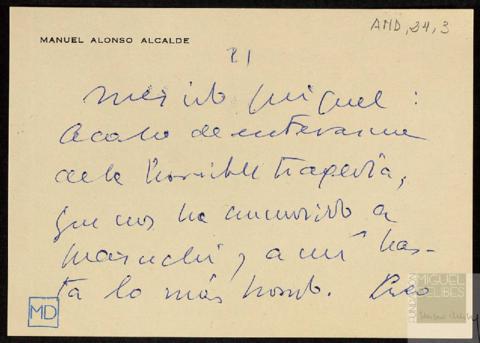 AMD, 24, 3
MANUEL ALONSO ALCALDE
21
Querido Miguel:
Acabo de enterarme
de la horrible tragedia,
que nos ha conmovido a
Maruchi y a mí has-
ta lo más hondo. Pero
MD
FUNDACIÓN
MIGUEL
DELIBES